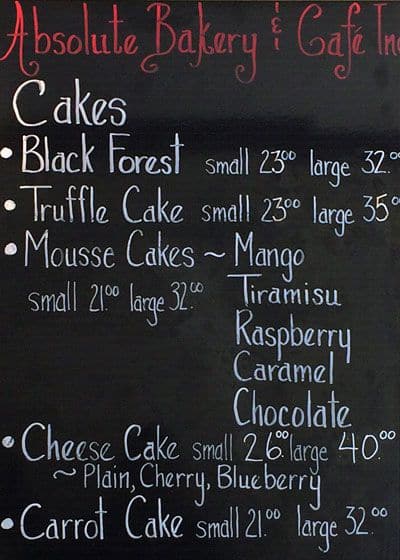 Absolute Bakery & Café Inc
Cakes
• Black Forest small 23.00 large 32.00
• Truffle Cake small 23.00 large 35.00
• Mousse Cakes ~ Mango
small 21.00 large 32.00 Tiramisu
Raspberry
Caramel
Chocolate
• Cheese Cake small 26.00 large 40.00
~ Plain, Cherry, Blueberry
• Carrot Cake small 21.00 large 32.00